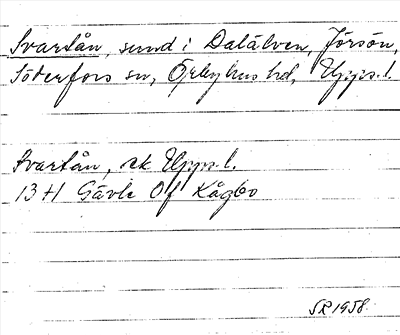 Svartån, sund i Dalälven, Jörsön,
Söderfors sn, Örbyhus hd, Upps. l.
Svartån, ek Upps. l.
13 H Gävle Of Kågbo
SR 1958.